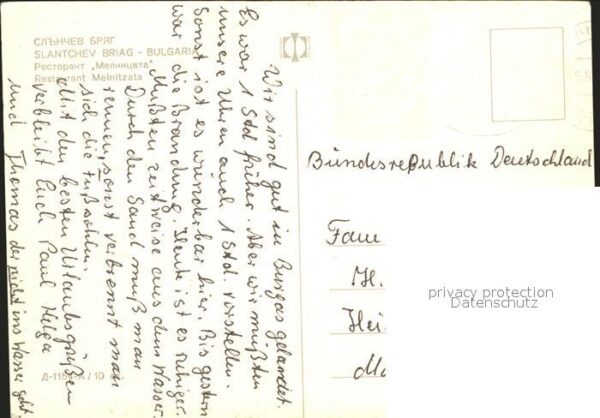 СЛЪНЧЕВ БРЯГ
SLANTCHEV BRIAG - BULGARIA
Ресторант „Мелницата"
Restaurant Melnitzata
Wir sind gut in Burgas gelandet.
Es war 1 Std früher. Aber wir mußten
unsere Uhren auch 1 Std. vorstellen.
Sonst ist es wunderbar hier. Bis gestern
war die Brandung. Heute ist es ruhiger.
Mußten zeitweise aus dem Wasser.
Durch den Sand muß man
rennen, sonst verbrennt man
sich die Fußsohlen.
Mit den besten Urlaubsgrüßen
verbleibt Euch Paul Helga
und Thomas der nicht ins Wasser geht.
Bundesrepublik Deutschland
Fam
H.
Hei
Ma
privacy protection
Datenschutz